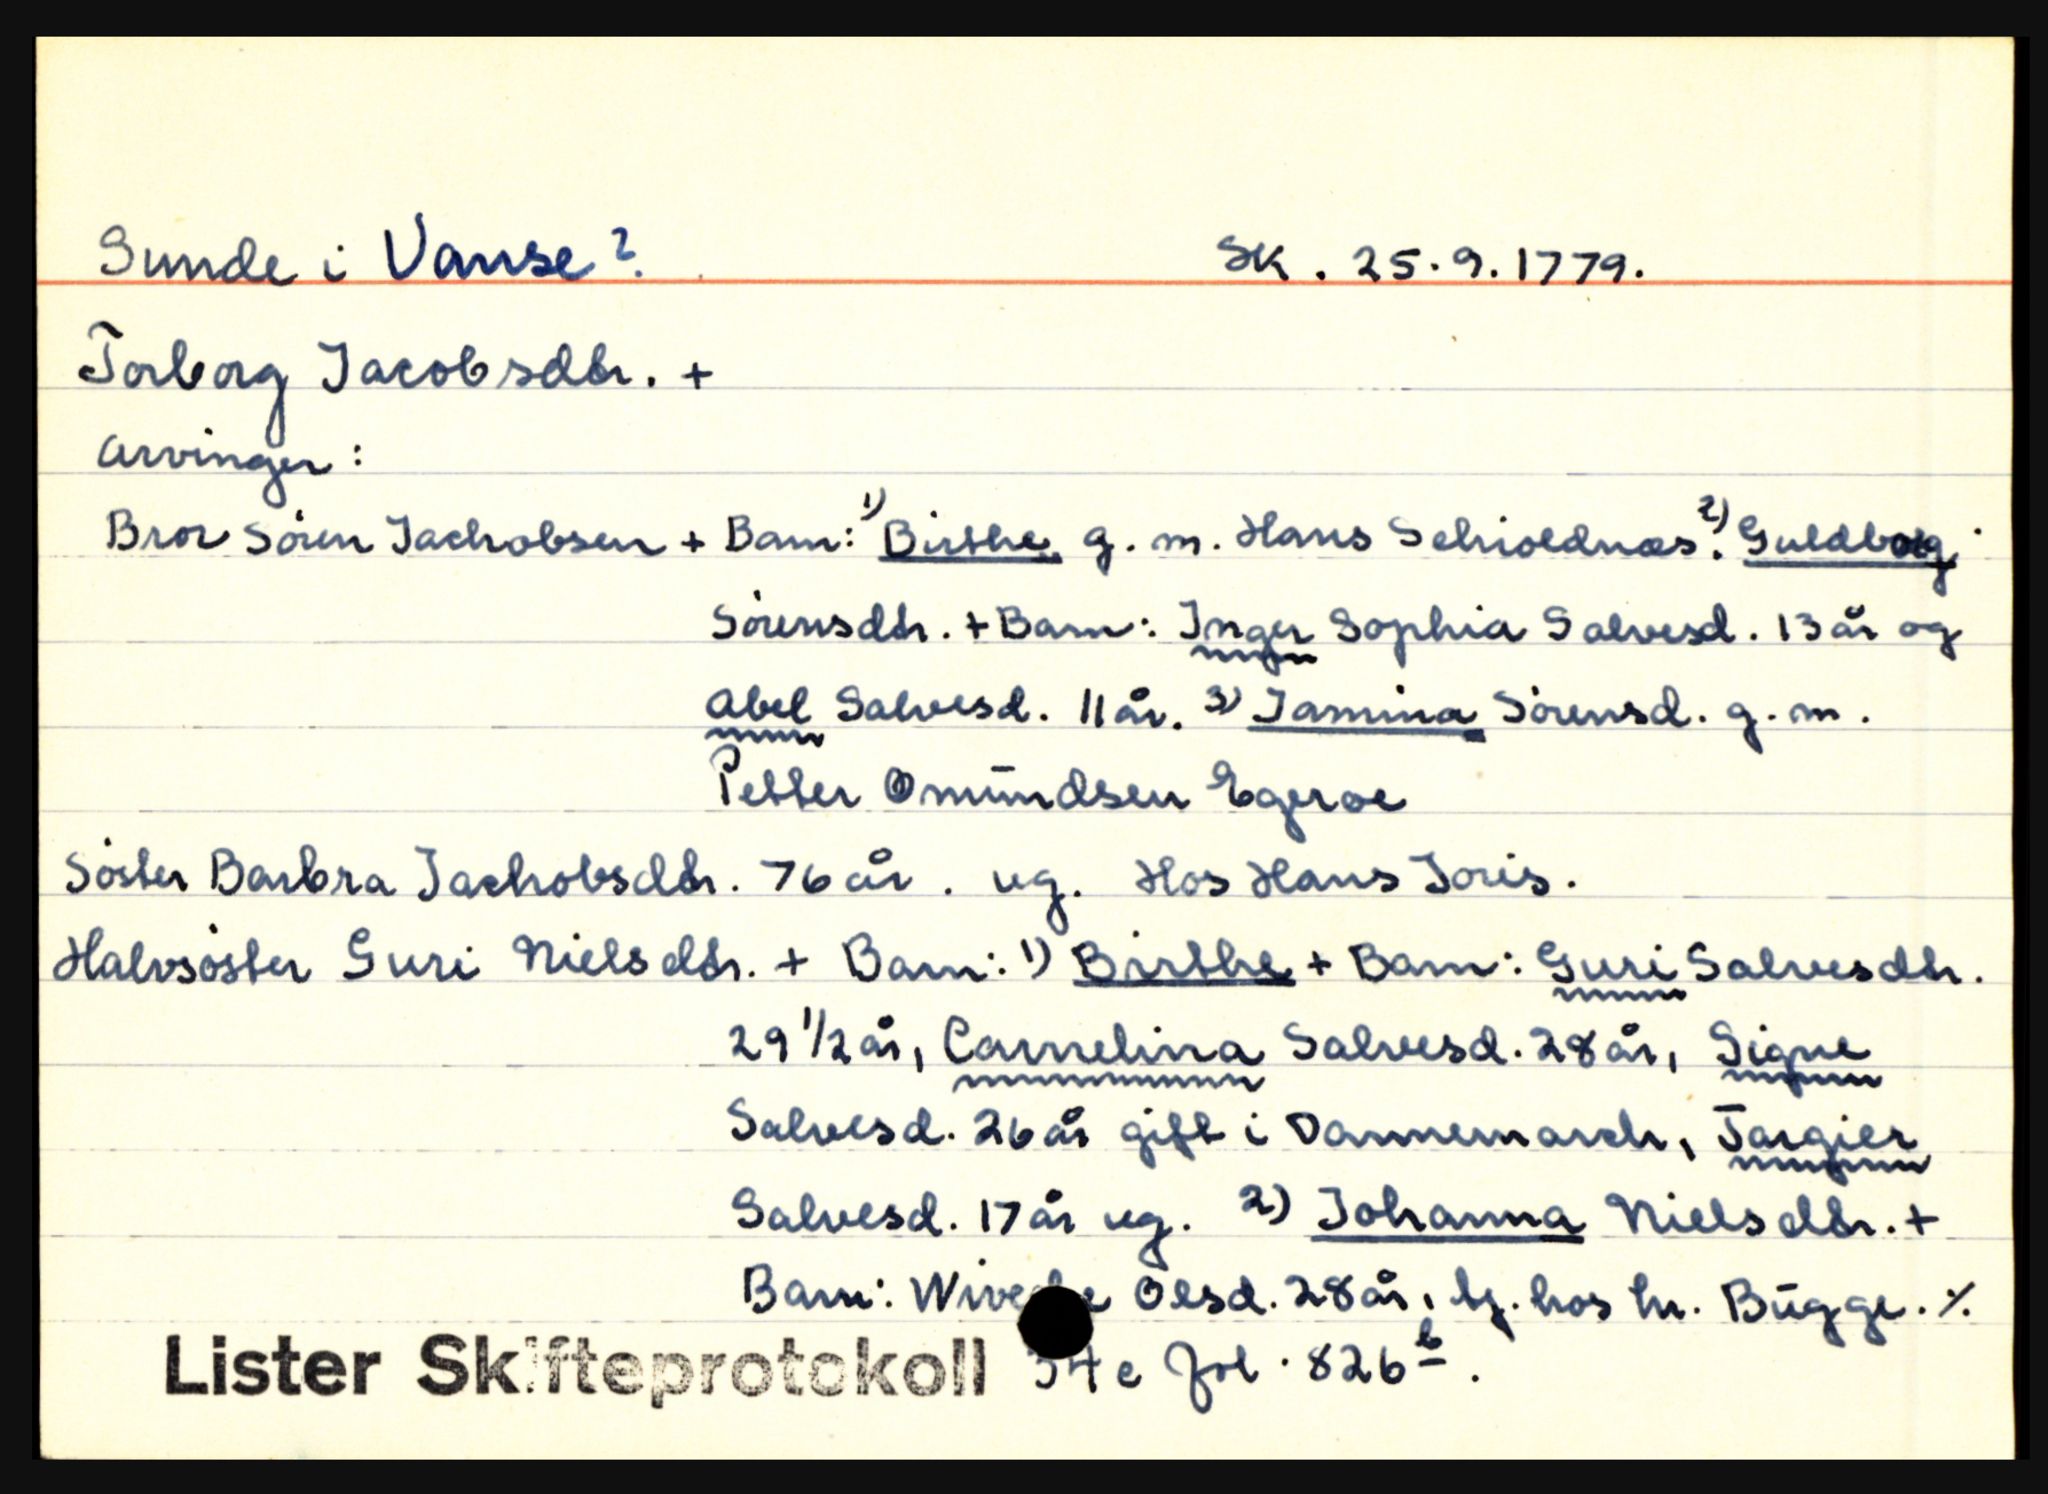 Sunde i Vanse? SK. 25.9.1779.
Torborg Jacobsdtr. +
Arvinger:
Bror Sören Jachobsen + Barn: 1) Birthe g.m. Hans Schioldnæs. 2) Guldborg
Sörensdtr. + Barn: Inger Sophia Salvesd. 13 år og
Abel Salvesd. 11 år. 3) Jamina Sörensd. g.m.
Petter Omundsen Egeroe
Söster Barbra Jachobsdtr. 76 år. ug. Hos Hans Joris.
Halvsöster Guri Nielsdtr. + Barn: 1) Birthe + Barn: Guri Salvesdtr.
29 1/2 år, Carnelina Salvesd. 28 år, Signe
Salvesd. 26 år gift i Dannemarch, Targier
Salvesd. 17 år ug. 2) Johanna Nielsdtr. +
Barn: Olsd. 28 år, tj. hos hr. Bugge. ٪
Lister Skifteprotokoll 34 c fol. 826 b.